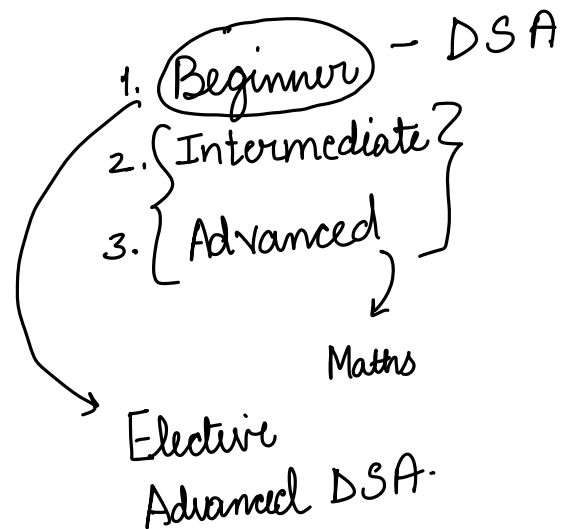 1. Beginner - DSA
2. Intermediate
3. Advanced
Maths
Elective
Advanced DSA.